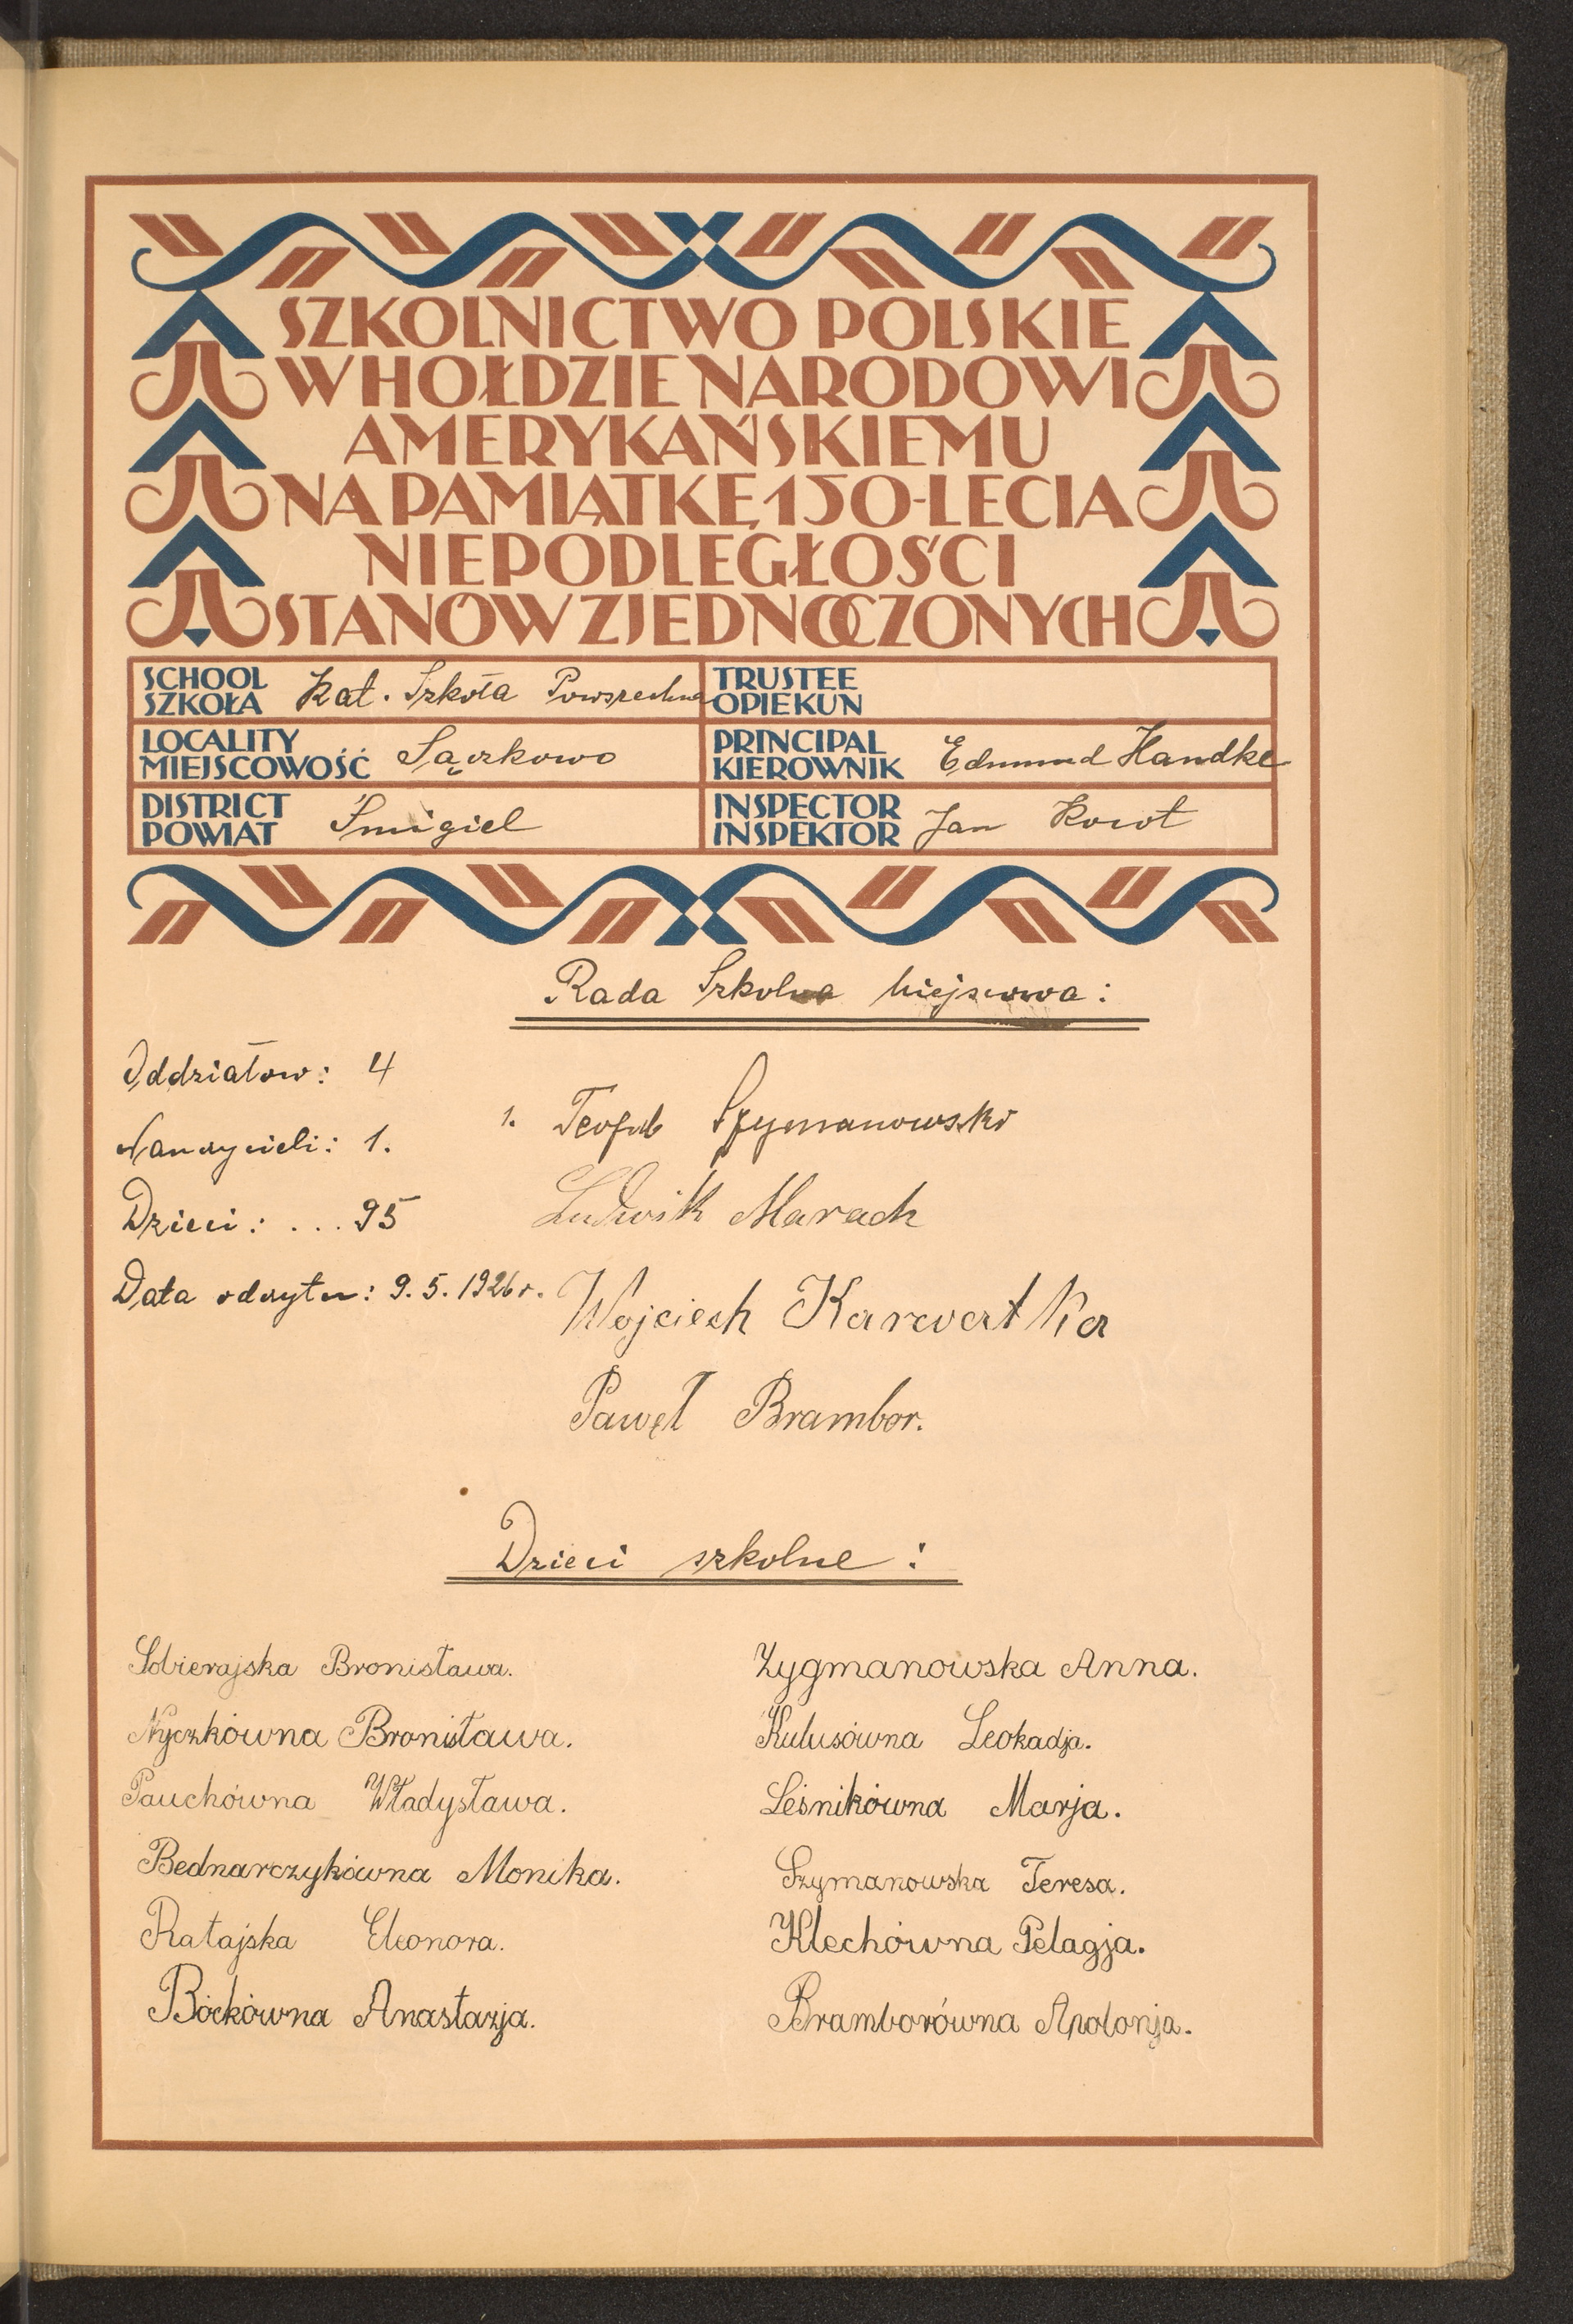 SZKOLNICTWO POLSKIE
W HOŁDZIE NARODOWI
AMERYKAŃSKIEMU
NA PAMIĄTKĘ 150-LECIA
NIEPODLEGŁOŚCI
STANÓW ZJEDNOCZONYCH
SCHOOL
SZKOŁA Kat. Szkoła Powszechna
TRUSTEE
OPIEKUN
LOCALITY
MIEJSCOWOŚĆ Sączkowo
PRINCIPAL
KIEROWNIK Edmund Handke
DISTRICT
POWIAT Śmigiel
INSPECTOR
INSPEKTOR Jan
Rada Szkolna Miejscowa:
Oddziałów: 4
Nauczycieli: 1.
Dzieci: ... 95
Data odczytu: 9. 5. 1926 r.
1. Teofil Szymanowski
Ludwik Marach
Wojciech Karwatka
Paweł Brambor.
Dzieci szkolne:
Sobierajska Bronisława.
Nyczkówna Bronisława.
Pauchówna Władysława.
Bednarczykówna Monika.
Ratajska Eleonora.
Böckówna Anastazja.
Zygmanowska Anna.
Kulusówna Leokadja.
Leśnikówna Marja.
Szymanowska Teresa.
Klechówna Pelagja.
Bramborówna Apolonja.